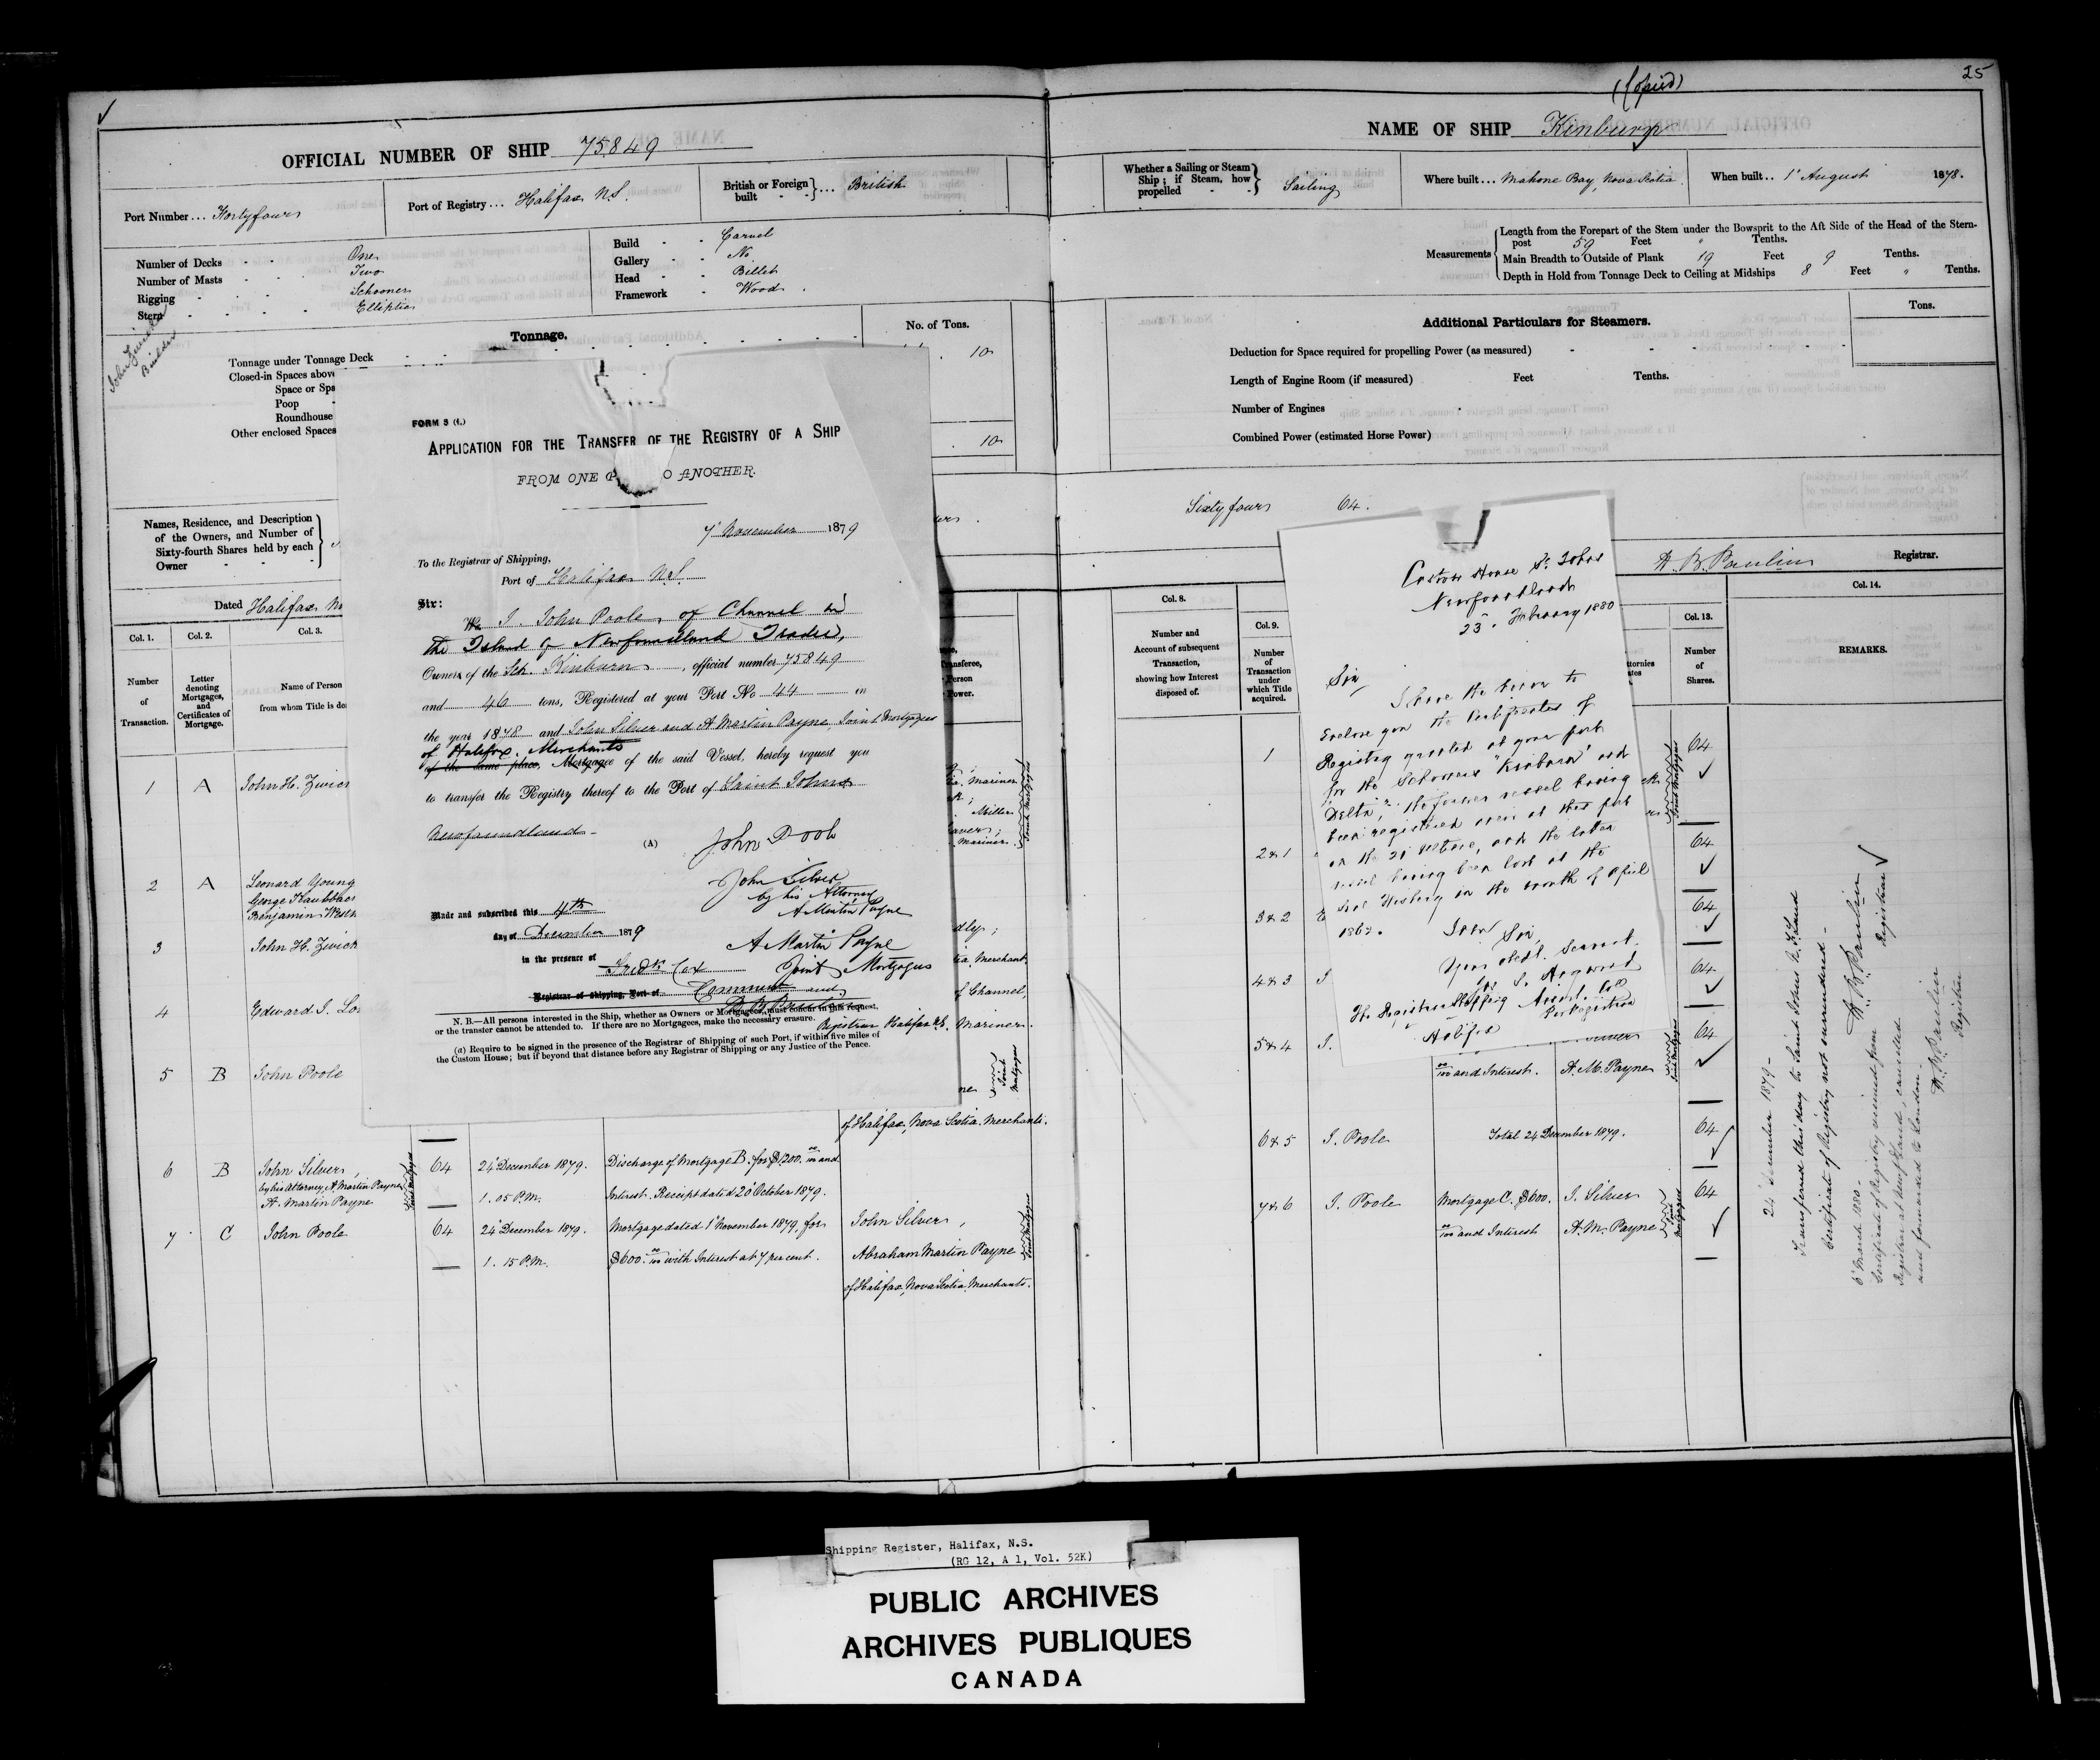 25
(Copied)
OFFICIAL NUMBER OF SHIP 75849
Port Number... Fortyfour
Port of Registry... Halifax N.S.
British or Foreign built } ... British
Number of Decks - - One
Number of Masts - - Two
Rigging - - Schooner
Stern - - Elliptic
Build - - Carvel
Gallery - - No
Head - - Billet
Framework - Wood
John Zwicker
Builder
Tonnage.
No. of Tons.
Tonnage under Tonnage Deck
10
Closed-in Spaces above
Space or Spa
Poop
Roundhouse
Other enclosed Spaces
10
Names, Residence, and Description
of the Owners, and Number of
Sixty-fourth Shares held by each
Owner
Dated Halifax
Col. 1.
Col. 2.
Col. 3.
Number of Transaction.
Letter denoting Mortgages, and Certificates of Mortgage.
Name of Person
from whom Title is de
1 A John H. Zwick
2 A Leonard Young
George
Benjamin
3 John H. Zwick
4 Edward J.
5 B John Poole
of Halifax, Nova Scotia. Merchants.
6 B John Silver,
by his Attorney, A. Martin Payne
A. Martin Payne
Joint Mortgagees
64
24 December 1879.
1. 05 P.M.
Discharge of Mortgage B. for $1200. 00/100 and
Interest. Receipt dated 20 October 1879.
7 C John Poole
64
24 December 1879.
1. 15 P.M.
Mortgage dated 1 November 1879, for
$600. 00/100 with Interest at 7 per cent.
John Silver,
Abraham Martin Payne
Joint Mortgagees
of Halifax, Nova Scotia. Merchants.
FORM 3 (f.)
APPLICATION FOR THE TRANSFER OF THE REGISTRY OF A SHIP
FROM ONE P O ANOTHER.
7 November 1879
To the Registrar of Shipping,
Port of Halifax N.S.
Sir:
We I. John Poole, of Channel in
the Island of Newfoundland Trader,
Owners of the Schr. Kinburn, official number 75849
and 46 tons, Registered at your Port No 44 in
the year 1878 and John Silver and A Martin Payne, Joint Mortgagees
of Halifax, Merchants
of the same place, Mortgagee of the said Vessel, hereby request you
to transfer the Registry thereof to the Port of Saint Johns
Newfoundland
(A)
John Pool
John Silver
by his Attorney
A Martin Payne
Made and subscribed this 4th
day of December 1879
in the presence of
A Martin Payne
Joint Mortgagees
Fredk Cox
Registrar of Shipping, Port of
and
Registrar Halifax N.S.
N. B.—All persons interested in the Ship, whether as Owners or Mortgagees, must concur in this request,
or the transfer cannot be attended to. If there are no Mortgagees, make the necessary erasure.
(a) Require to be signed in the presence of the Registrar of Shipping of such Port, if within five miles of
the Custom House; but if beyond that distance before any Registrar of Shipping or any Justice of the Peace.
ransferee,
Person
Power.
Mariner
Miller
Mariner.
Joint Mortgagees
Merchant.
of Channel,
Mariner.
Joint Mortgagees
NAME OF SHIP Kinburn
Whether a Sailing or Steam
Ship; if Steam, how
propelled
Sailing
Where built... Mahone Bay, Nova Scotia
When built.. 1 August 1878.
Measurements
Length from the Forepart of the Stem under the Bowsprit to the Aft Side of the Head of the Stern-
post 59 Feet " Tenths.
Main Breadth to Outside of Plank 19 Feet 9 Tenths.
Depth in Hold from Tonnage Deck to Ceiling at Midships 8 Feet " Tenths.
Additional Particulars for Steamers.
Tons.
Deduction for Space required for propelling Power (as measured)
Length of Engine Room (if measured) Feet Tenths.
Number of Engines
Combined Power (estimated Horse Power)
Sixtyfour 64.
Registrar.
Col. 8.
Col. 9.
Col. 13.
Col. 14.
Number and
Account of subsequent
Transaction,
showing how Interest
disposed of.
Number
of
Transaction
under
which Title
acquired.
Number
of
Shares.
REMARKS.
1
64
2 & 1
64
3 & 2
64
4 & 3
64
5 & 4
J.
00/100 and Interest.
A. M. Payne
Joint Mortgagees
64
6 & 5
J. Poole
Total 24 December 1879.
64
7 & 6
J. Poole
Mortgage C. $600.
00/100 and Interest
J. Silver
A. M. Payne
Joint Mortgagees
64
Custom House St. Johns
Newfoundland
23. February 1880
Sir,
I have the honor to
Enclose you the Certificates of
Registry granted at your port
for the Schooners "Kinburn" and
"Delta," the former vessel having
been registered anew at this port
on the 21 , and the latter
vessel having been lost at the
Seal Fishery in the month of April
186
I am Sir,
Your obedt. Servant.
The Registrar Shipping
Halifax
24 December 1879-
Transferred this day to Saint Johns N.F.land
Certificate of Registry not surrendered-
Registrar
6 March 1880-
Certificate of Registry received from
Registrar at Newf'dland, cancelled
and forwarded to London-
Registrar
Shipping Register, Halifax, N.S.
(RG 12, A 1, Vol. 52K)
PUBLIC ARCHIVES
ARCHIVES PUBLIQUES
CANADA